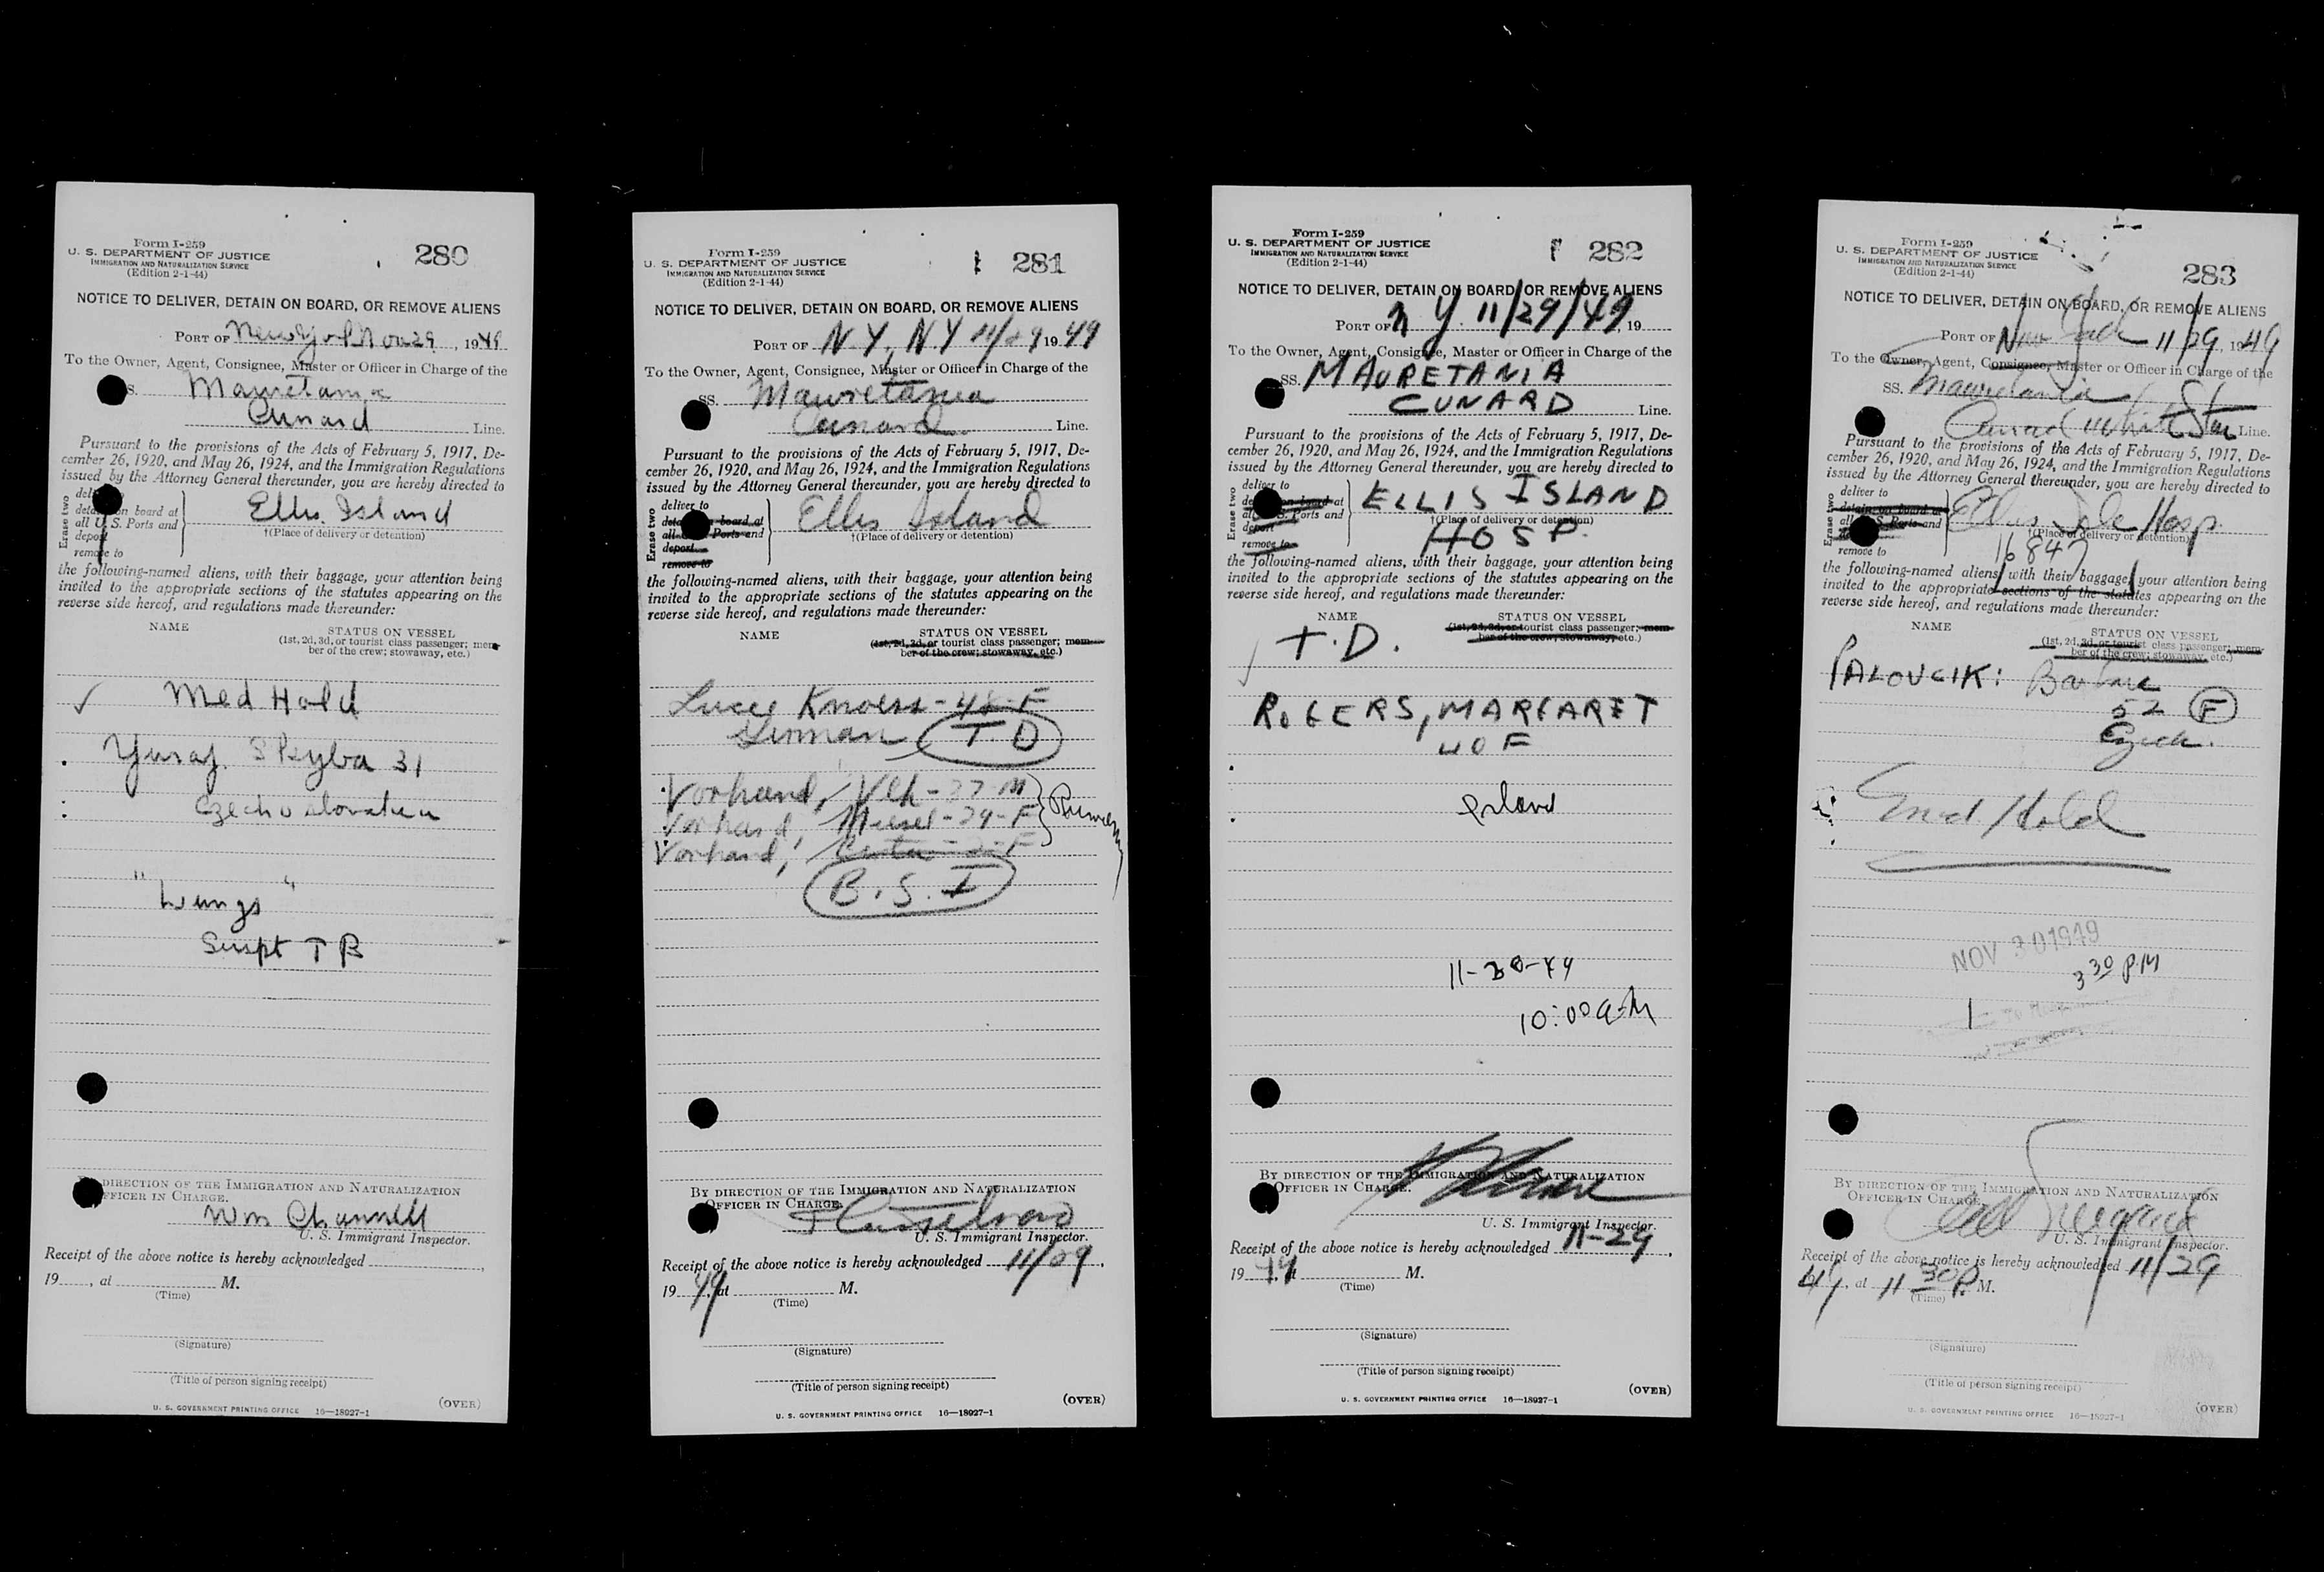 Form I-259
U. S. DEPARTMENT OF JUSTICE
IMMIGRATION AND NATURALIZATION SERVICE
(Edition 2-1-44)
280
NOTICE TO DELIVER, DETAIN ON BOARD, OR REMOVE ALIENS
PORT OF New York Nov 29, 1949
To the Owner, Agent, Consignee, Master or Officer in Charge of the
Mauretania
Cunard Line.
Pursuant to the provisions of the Acts of February 5, 1917, De-
cember 26, 1920, and May 26, 1924, and the Immigration Regulations
issued by the Attorney General thereunder, you are hereby directed to
Erase two
on board at
all U.S. Ports and
deport
remove to
Ellis Island
†(Place of delivery or detention)
the following-named aliens, with their baggage, your attention being
invited to the appropriate sections of the statutes appearing on the
reverse side hereof, and regulations made thereunder:
NAME
STATUS ON VESSEL
(1st, 2d, 3d, or tourist class passenger; mem-
ber of the crew; stowaway, etc.)
✓ Med Hold
Skyba 31
Czechoslovakia
"Lungs"
Suspt TB
DIRECTION OF THE IMMIGRATION AND NATURALIZATION
OFFICER IN CHARGE.
Wm Channell
U. S. Immigrant Inspector.
Receipt of the above notice is hereby acknowledged
19, at M.
(Time)
(Signature)
(Title of person signing receipt)
(OVER)
U. S. GOVERNMENT PRINTING OFFICE 16—18027-1
Form I-259
U. S. DEPARTMENT OF JUSTICE
IMMIGRATION AND NATURALIZATION SERVICE
(Edition 2-1-44)
281
NOTICE TO DELIVER, DETAIN ON BOARD, OR REMOVE ALIENS
PORT OF N.Y, N.Y 11/29 1949
To the Owner, Agent, Consignee, Master or Officer in Charge of the
SS. Mauretania
Cunard Line.
Pursuant to the provisions of the Acts of February 5, 1917, De-
cember 26, 1920, and May 26, 1924, and the Immigration Regulations
issued by the Attorney General thereunder, you are hereby directed to
Erase two
deliver to
board at
Ports and
deport
remove to
Ellis Island
†(Place of delivery or detention)
the following-named aliens, with their baggage, your attention being
invited to the appropriate sections of the statutes appearing on the
reverse side hereof, and regulations made thereunder:
NAME
STATUS ON VESSEL
(1st, 2d, 3d, or tourist class passenger; mem-
ber of the crew; stowaway, etc.)
F
German T.D
Vorhand, M
Vorhand, 29 - F
Vorhand, F
B.S.I
BY DIRECTION OF THE IMMIGRATION AND NATURALIZATION
OFFICER IN CHARGE.
U. S. Immigrant Inspector.
Receipt of the above notice is hereby acknowledged 11/29,
1949, at M.
(Time)
(Signature)
(Title of person signing receipt)
(OVER)
U. S. GOVERNMENT PRINTING OFFICE 16—18027-1
Form I-259
U. S. DEPARTMENT OF JUSTICE
IMMIGRATION AND NATURALIZATION SERVICE
(Edition 2-1-44)
282
NOTICE TO DELIVER, DETAIN ON BOARD, OR REMOVE ALIENS
PORT OF N Y. 11/29/49 19
To the Owner, Agent, Consignee, Master or Officer in Charge of the
SS. MAURETANIA
CUNARD Line.
Pursuant to the provisions of the Acts of February 5, 1917, De-
cember 26, 1920, and May 26, 1924, and the Immigration Regulations
issued by the Attorney General thereunder, you are hereby directed to
Erase two
deliver to
on board at
Ports and
deport
remove to
ELLIS ISLAND
†(Place of delivery or detention)
HOSP.
the following-named aliens, with their baggage, your attention being
invited to the appropriate sections of the statutes appearing on the
reverse side hereof, and regulations made thereunder:
NAME
STATUS ON VESSEL
(1st, 2d, 3d, or tourist class passenger; mem-
ber of the crew; stowaway, etc.)
✓ T.D.
ROGERS, MARGARET
40 F
11-30-49
10:00 a.M
BY DIRECTION OF THE IMMIGRATION AND NATURALIZATION
OFFICER IN CHARGE.
U. S. Immigrant Inspector.
Receipt of the above notice is hereby acknowledged 11-29,
1949, at M.
(Time)
(Signature)
(Title of person signing receipt)
(OVER)
U. S. GOVERNMENT PRINTING OFFICE 16—18027-1
Form I-259
U. S. DEPARTMENT OF JUSTICE
IMMIGRATION AND NATURALIZATION SERVICE
(Edition 2-1-44)
283
NOTICE TO DELIVER, DETAIN ON BOARD, OR REMOVE ALIENS
PORT OF New York 11/29, 1949
To the Owner, Agent, Consignee, Master or Officer in Charge of the
SS. Mauretania
Cunard White Star Line.
Pursuant to the provisions of the Acts of February 5, 1917, De-
cember 26, 1920, and May 26, 1924, and the Immigration Regulations
issued by the Attorney General thereunder, you are hereby directed to
Erase two
deliver to
detain on board at
S. Ports and
remove to
Ellis Isle Hosp.
†(Place of delivery or detention)
16847
the following-named aliens, with their baggage, your attention being
invited to the appropriate sections of the statutes appearing on the
reverse side hereof, and regulations made thereunder:
NAME
STATUS ON VESSEL
(1st, 2d, 3d, or tourist class passenger; mem-
ber of the crew; stowaway, etc.)
PALOVCIK: Barbara
52 F
Czech.
Med. Hold
NOV 30 1949
3 30 P.M
BY DIRECTION OF THE IMMIGRATION AND NATURALIZATION
OFFICER IN CHARGE.
U. S. Immigrant Inspector.
Receipt of the above notice is hereby acknowledged 11/29
49, at 11 30 P. M.
(Time)
(Signature)
(Title of person signing receipt)
(OVER)
U. S. GOVERNMENT PRINTING OFFICE 16—18027-1